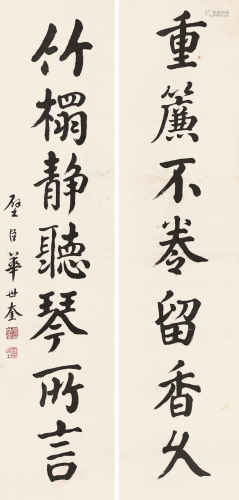 重簾不卷留香久
竹榻靜聽琴所言
壁臣華世奎